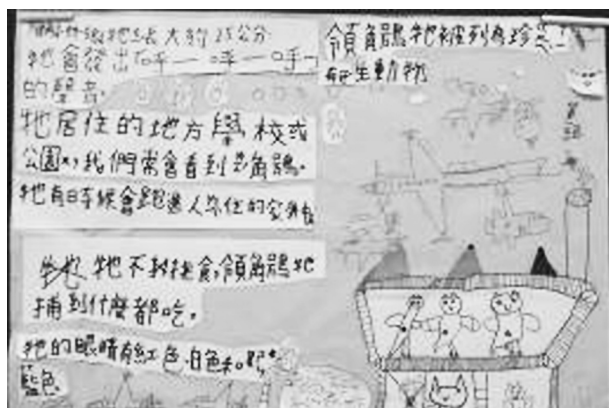 牠長大約25公分
牠會發出呼—呼—呼—
的聲音。
牠居住的地方學校或
公園,我們常會看到領角鴞。
牠有時候會跑進人住的
牠不挑食,領角鴞牠
捕到什麼都吃。
牠的眼睛有紅色、白色和
藍色
領角鴞牠被列為珍
野生動物